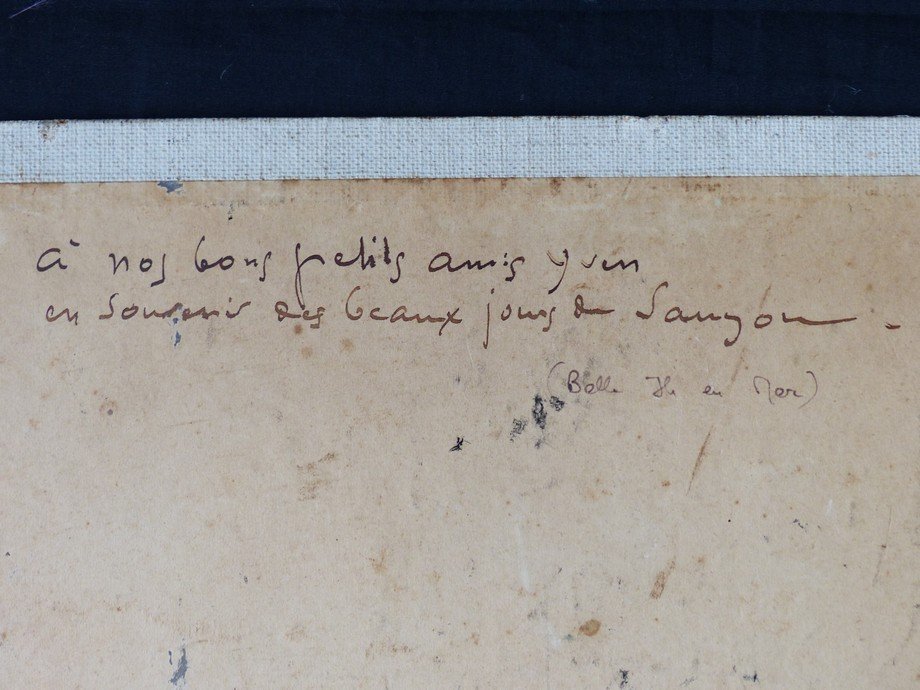 à nos bons petits amis Yven
en souvenir des beaux jours de Sauzon.
(Belle Ile en Mer)